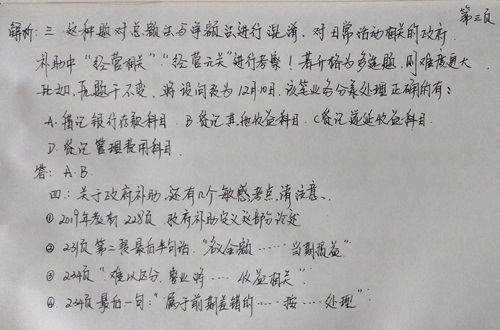 第三页
解析：三、这种题对总额法与净额法进行混淆，对日常活动相关的政府
补助中“经营相关”“经营无关”进行考察！若升格为多选题，则难度更大
比如，原题干不变，将设问改为12月10日，该笔业务分录处理正确的有：
A.借记银行存款科目 B.贷记其他收益科目 C.贷记递延收益科目
D.贷记管理费用科目
答：A.B.
四：关于政府补助，还有几个敏感考点，请注意、
①2019年教材228页 政府补助定义这部分论述
②231页第二段最后半句话，“名义金额……当期损益”
③234页“难以区分，企业将……收益相关”
④234页最后一句：“属于前期差错的……按……处理”